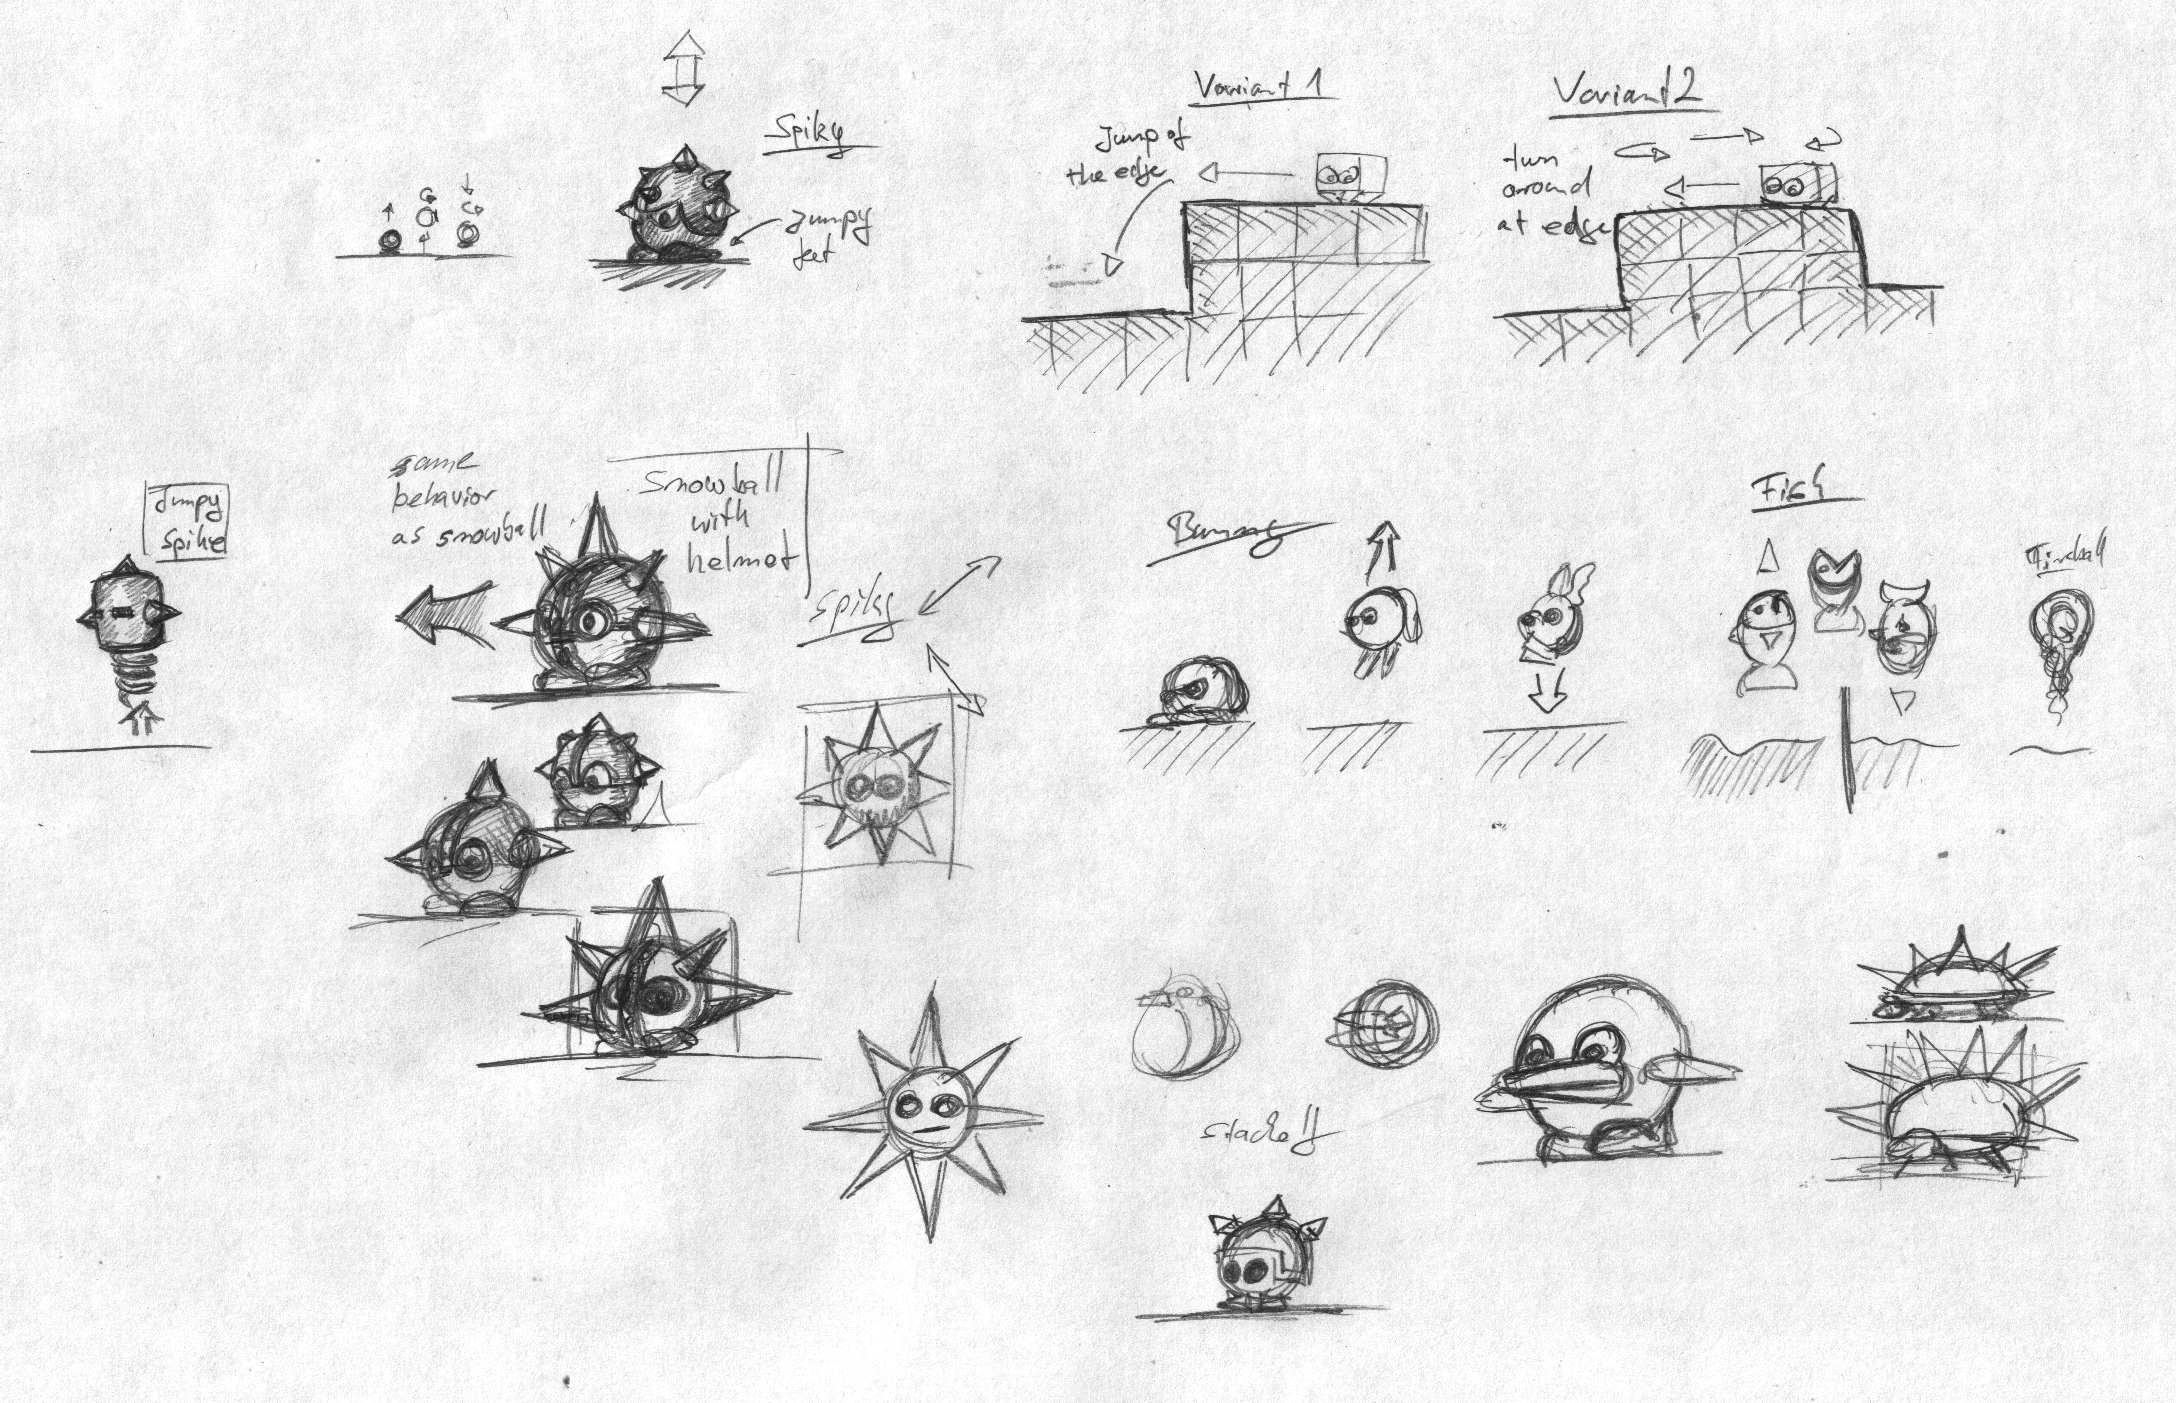 Spiky
Jumpy
feet
Variant 1
Jump of
the edge
Variant 2
turn
around
at edge
Jumpy
Spike
same
behavior
as snowball
Snowball
with
helmet
Spiky
Bunny
Fish
Fireball